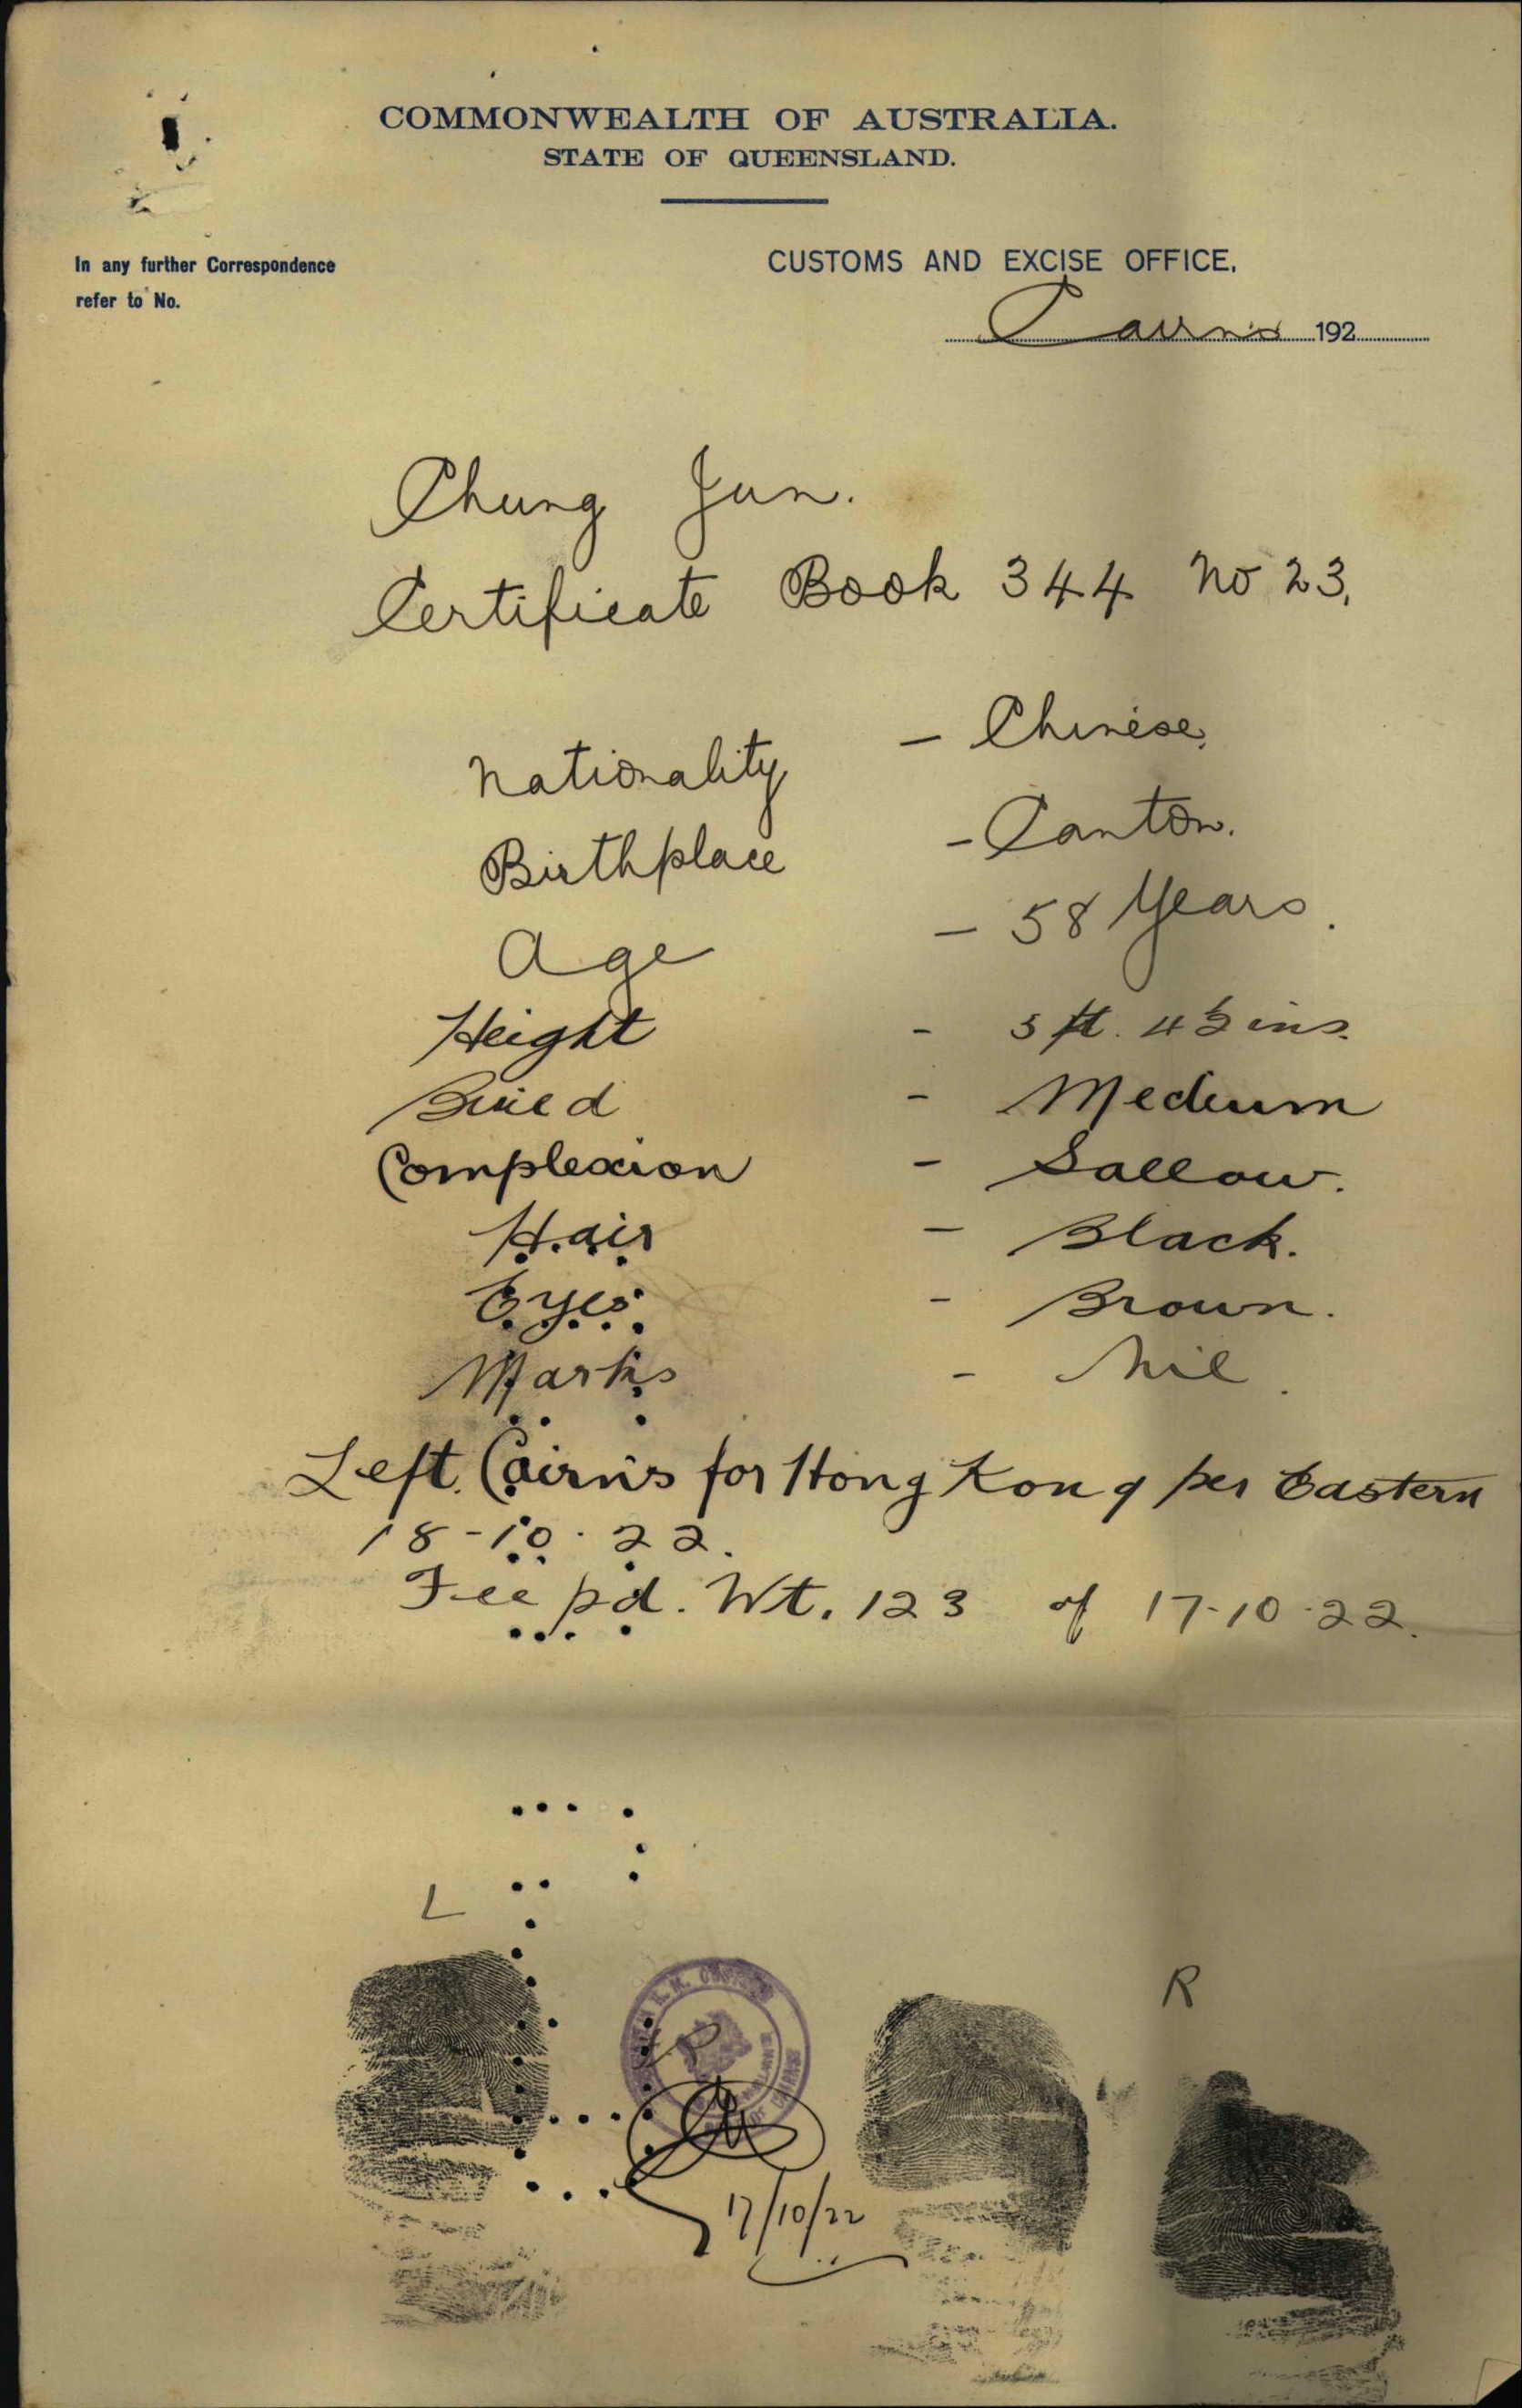 COMMONWEALTH OF AUSTRALIA.
STATE OF QUEENSLAND.
In any further Correspondence
refer to No.
CUSTOMS AND EXCISE OFFICE,
Cairns 192
Chung Jun.
Certificate Book 344 No 23.
Nationality - Chinese.
Birthplace - Canton.
Age - 58 Years.
Height - 5 ft. 4½ ins.
Build - Medium
Complexion - Sallow.
Hair - Black.
Eyes - Brown.
Marks - Nil.
Left Cairns for Hong Kong per Eastern
18-10-22.
Fee pd. Wt. 123 of 17-10-22.
L
R
17/10/22